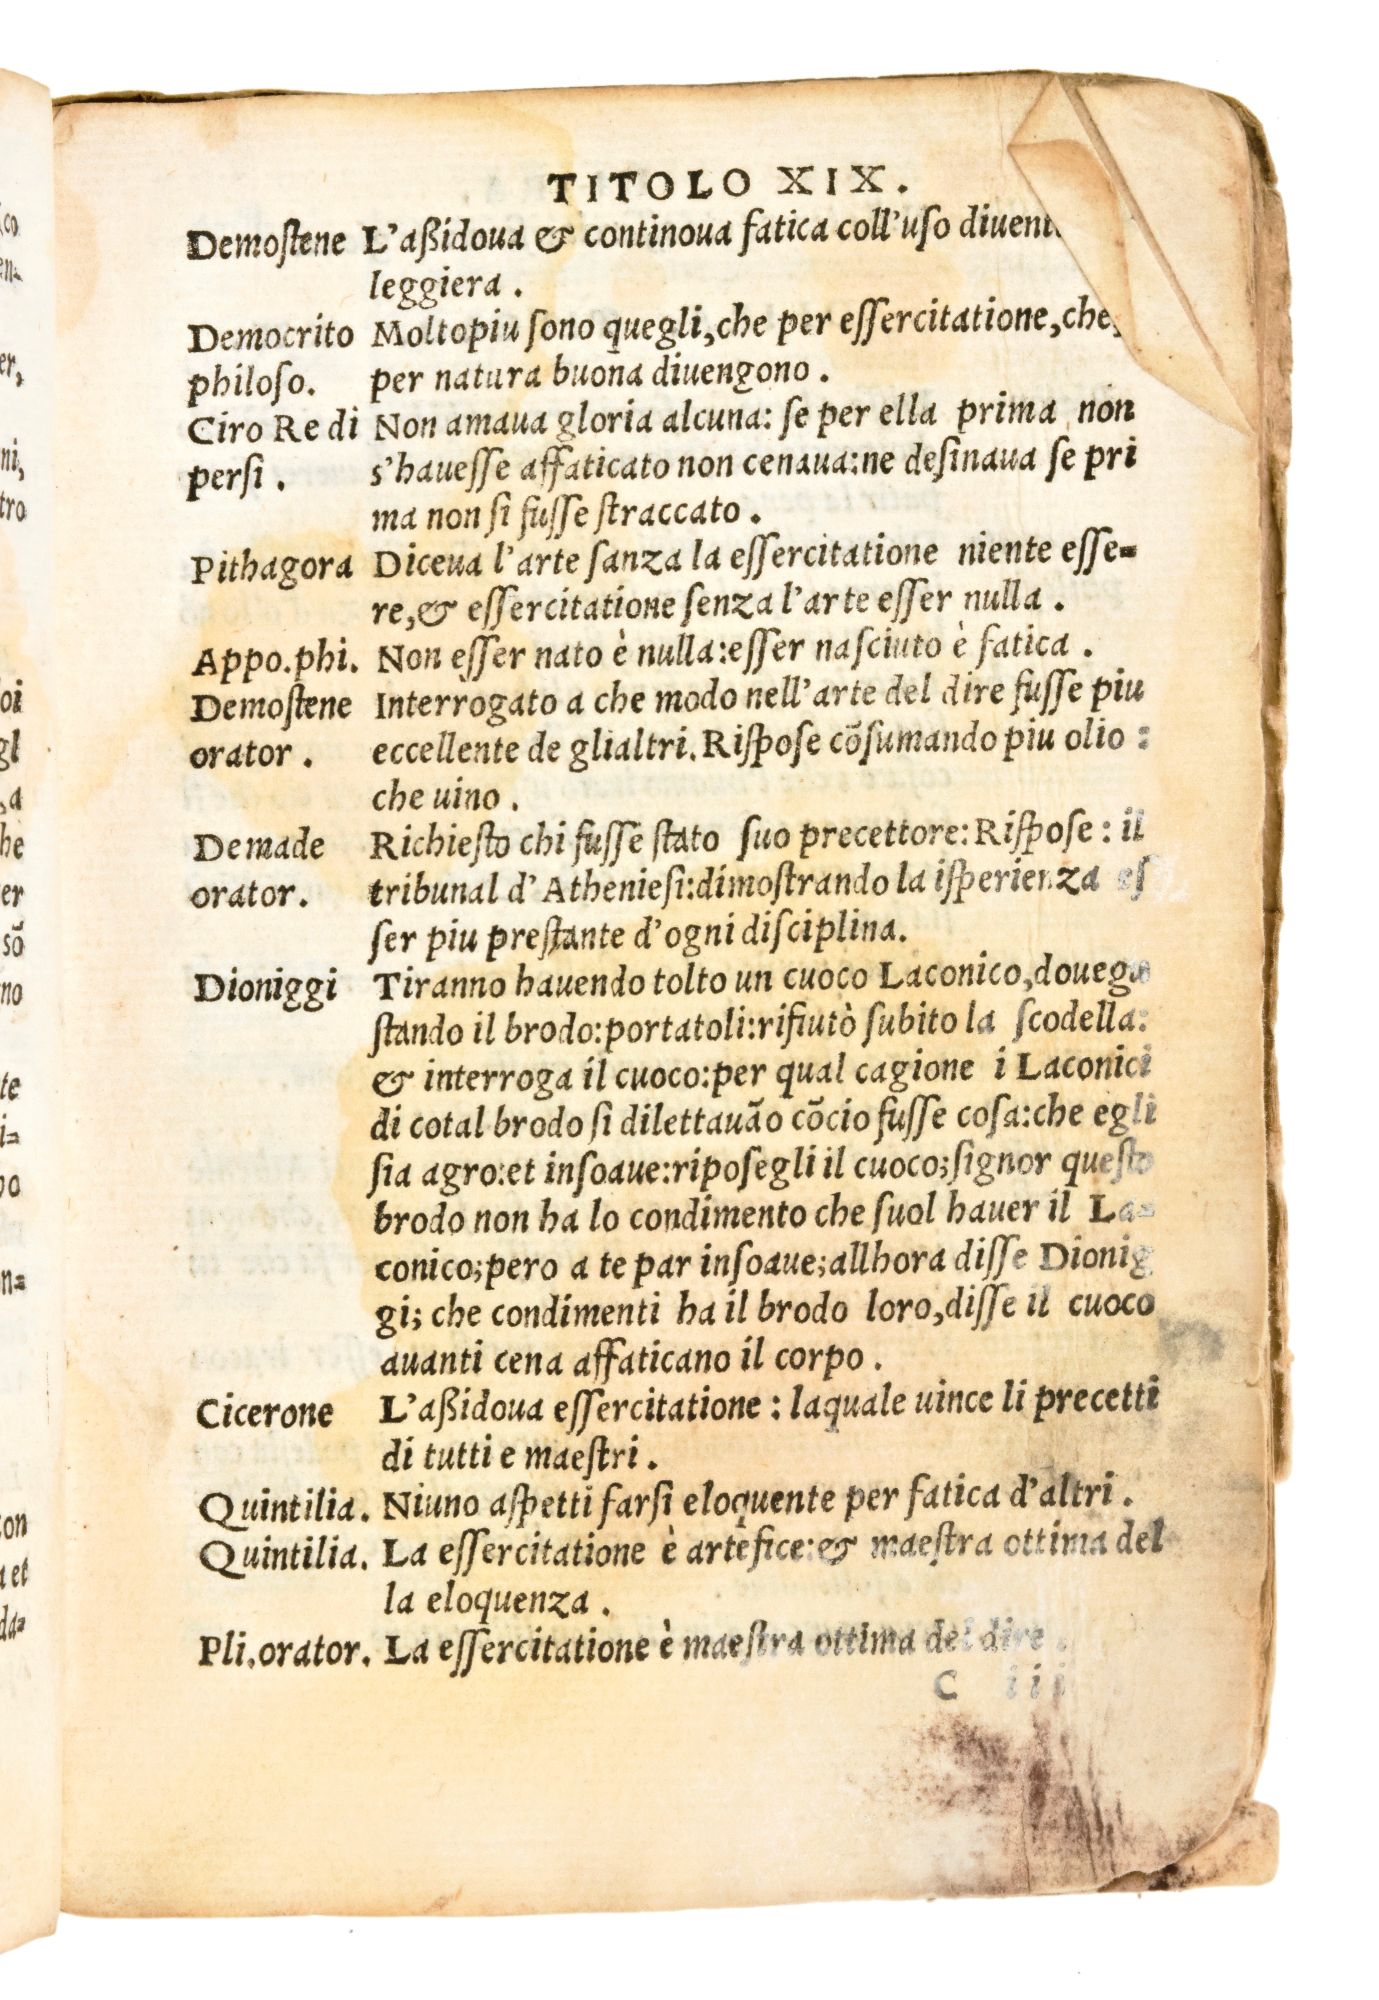 TITOLO XIX.
Demostene L'aßidoua & continoua fatica coll'uso
leggiera.
Democrito Moltopiu sono quegli, che per essercitatione, che,
philoso. per natura buona diuengono.
Ciro Re di Non amaua gloria alcuna: se per ella prima non
persi. s'hauesse affaticato non cenaua: ne desinaua se pri
ma non si fusse straccato.
Pithagora Diceua l'arte sanza la essercitatione niente esse-
re, & essercitatione senza l'arte esser nulla.
Appo. phi. Non esser nato è nulla: esser nasciuto è fatica.
Demostene Interrogato a che modo nell'arte del dire fusse piu
orator. eccellente de glialtri. Rispose cōsumando piu olio:
che uino.
Demade Richiesto chi fusse stato suo precettore: Rispose: il
orator. tribunal d'Atheniesi: dimostrando la isperienza es
ser piu prestante d'ogni disciplina.
Dioniggi Tiranno hauendo tolto un cuoco Laconico,
stando il brodo: portatoli: rifiutò subito la scodella:
& interroga il cuoco: per qual cagione i Laconici
di cotal brodo si dilettauāo cōcio fusse cosa: che egli
sia agro: et insoaue: riposegli il cuoco; signor questo
brodo non ha lo condimento che suol hauer il La-
conico; pero a te par insoaue; allhora disse Dionig
gi; che condimenti ha il brodo loro, disse il cuoco
auanti cena affaticano il corpo.
Cicerone L'aßidoua essercitatione: laquale uince li precetti
di tutti e maestri.
Quintilia. Niuno aspetti farsi eloquente per fatica d'altri.
Quintilia. La essercitatione è artefice: & maestra ottima del
la eloquenza.
Pli. orator. La essercitatione è maestra ottima del dire.
C iii